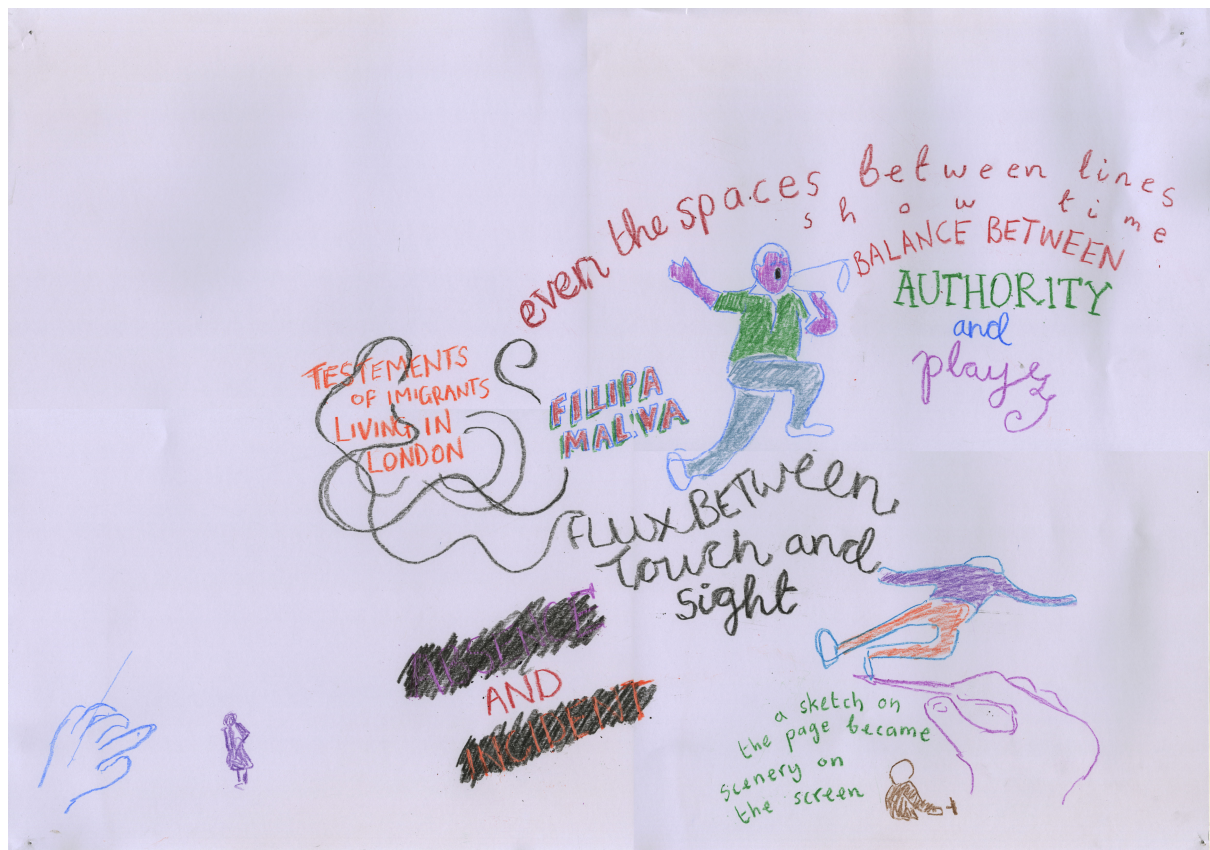 even the spaces between lines
show time
BALANCE BETWEEN
AUTHORITY
and
play
TESTEMENTS
OF IMIGRANTS
LIVING IN
LONDON
FILIPA
MALVA
FLUX BETWEEN
Touch and
Sight
AND
INCIDENT
a sketch on
the page became
scenery on
the screen